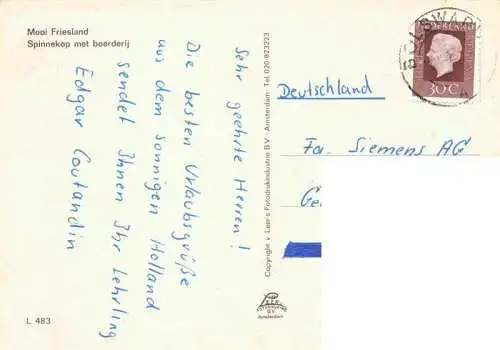 Mooi Friesland
Spinnekop met boerderij
Sehr geehrte Herren!
Die besten Urlaubsgrüße
aus dem sonnigen Holland
sendet Ihnen Ihr Lehrling
Edgar Coutandin
L 483
Copyright v. Leer's Fotodrukindustrie B.V. - Amsterdam - Tel. 020-823223
BOLSWARD
NEDERLAND
30C
Deutschland
Fa. Siemens AG
Ge
Amsterdam